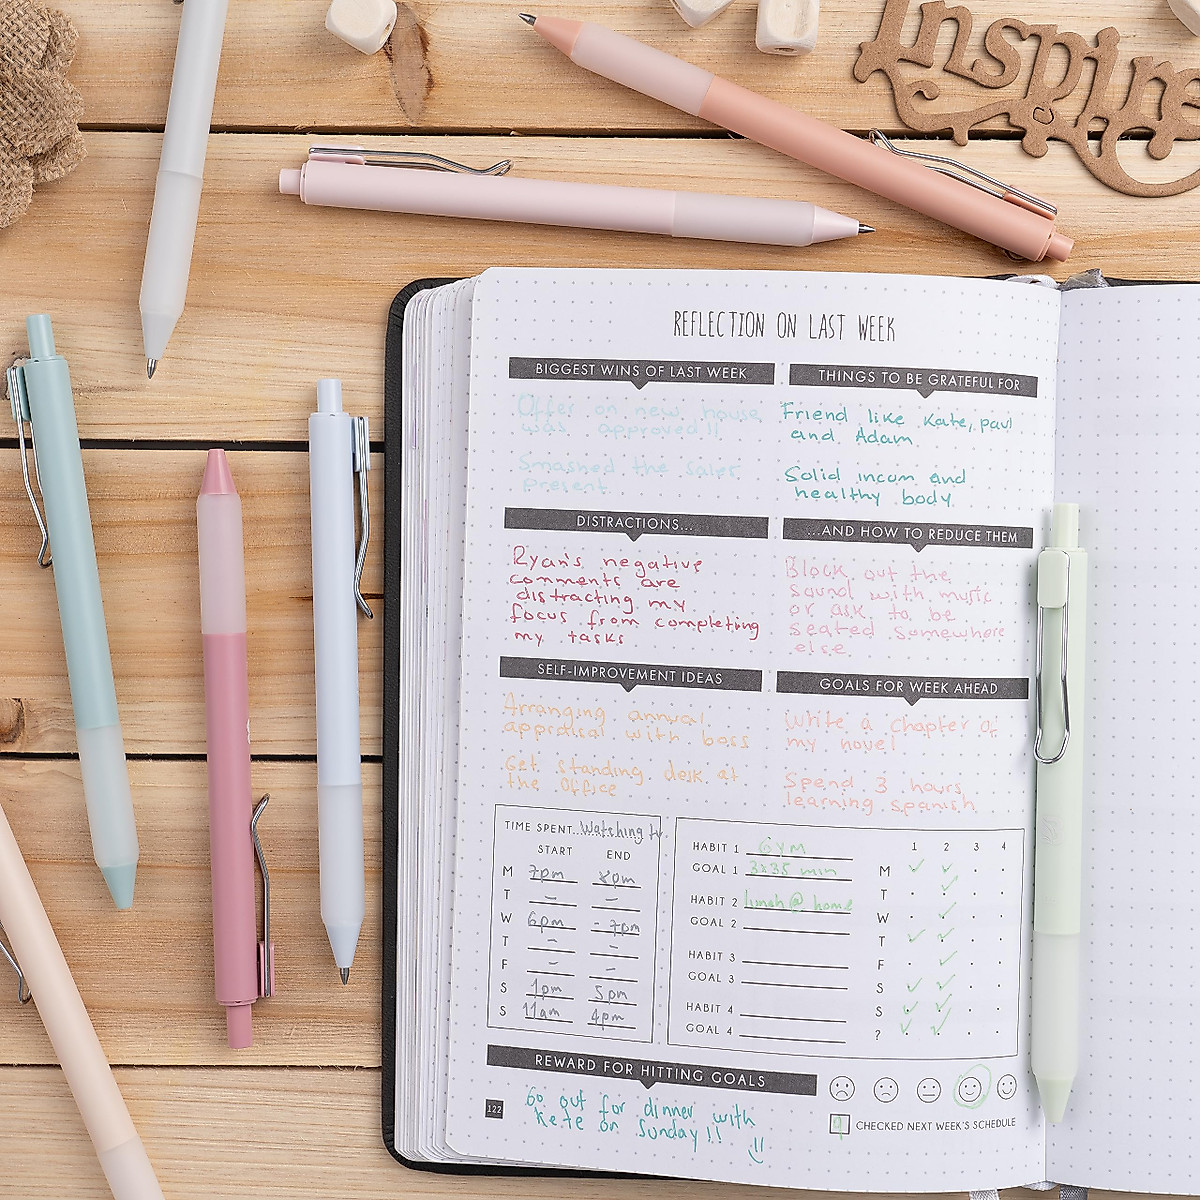 Inspire
REFLECTION ON LAST WEEK
BIGGEST WINS OF LAST WEEK
Offer on new house
was approved!!
Smashed the sales
present
THINGS TO BE GRATEFUL FOR
Friend like Kate, paul
and Adam
Solid incom and
healthy body
DISTRACTIONS...
Ryan's negative
comments are
distracting my
focus from completing
my tasks
...AND HOW TO REDUCE THEM
Block out the
sound with music
or ask to be
seated somewhere
else
SELF-IMPROVEMENT IDEAS
Arranging annual
appraisal with boss
Get standing desk at
the office
GOALS FOR WEEK AHEAD
Write a chapter of
my novel
Spend 3 hours
learning spanish
TIME SPENT...Watching tv
START END
M 7pm 8pm
T – –
W 6pm - 7pm
T – –
F – –
S 1pm 5pm
S 11am 4pm
1 2 3 4
HABIT 1 Gym
GOAL 1 3x35 min M
T
HABIT 2 lunch @ home W
GOAL 2
T
HABIT 3 F
GOAL 3 S
HABIT 4 S
GOAL 4 ?
REWARD FOR HITTING GOALS
Go out for dinner with
Kete on Sunday!!
CHECKED NEXT WEEK'S SCHEDULE
122